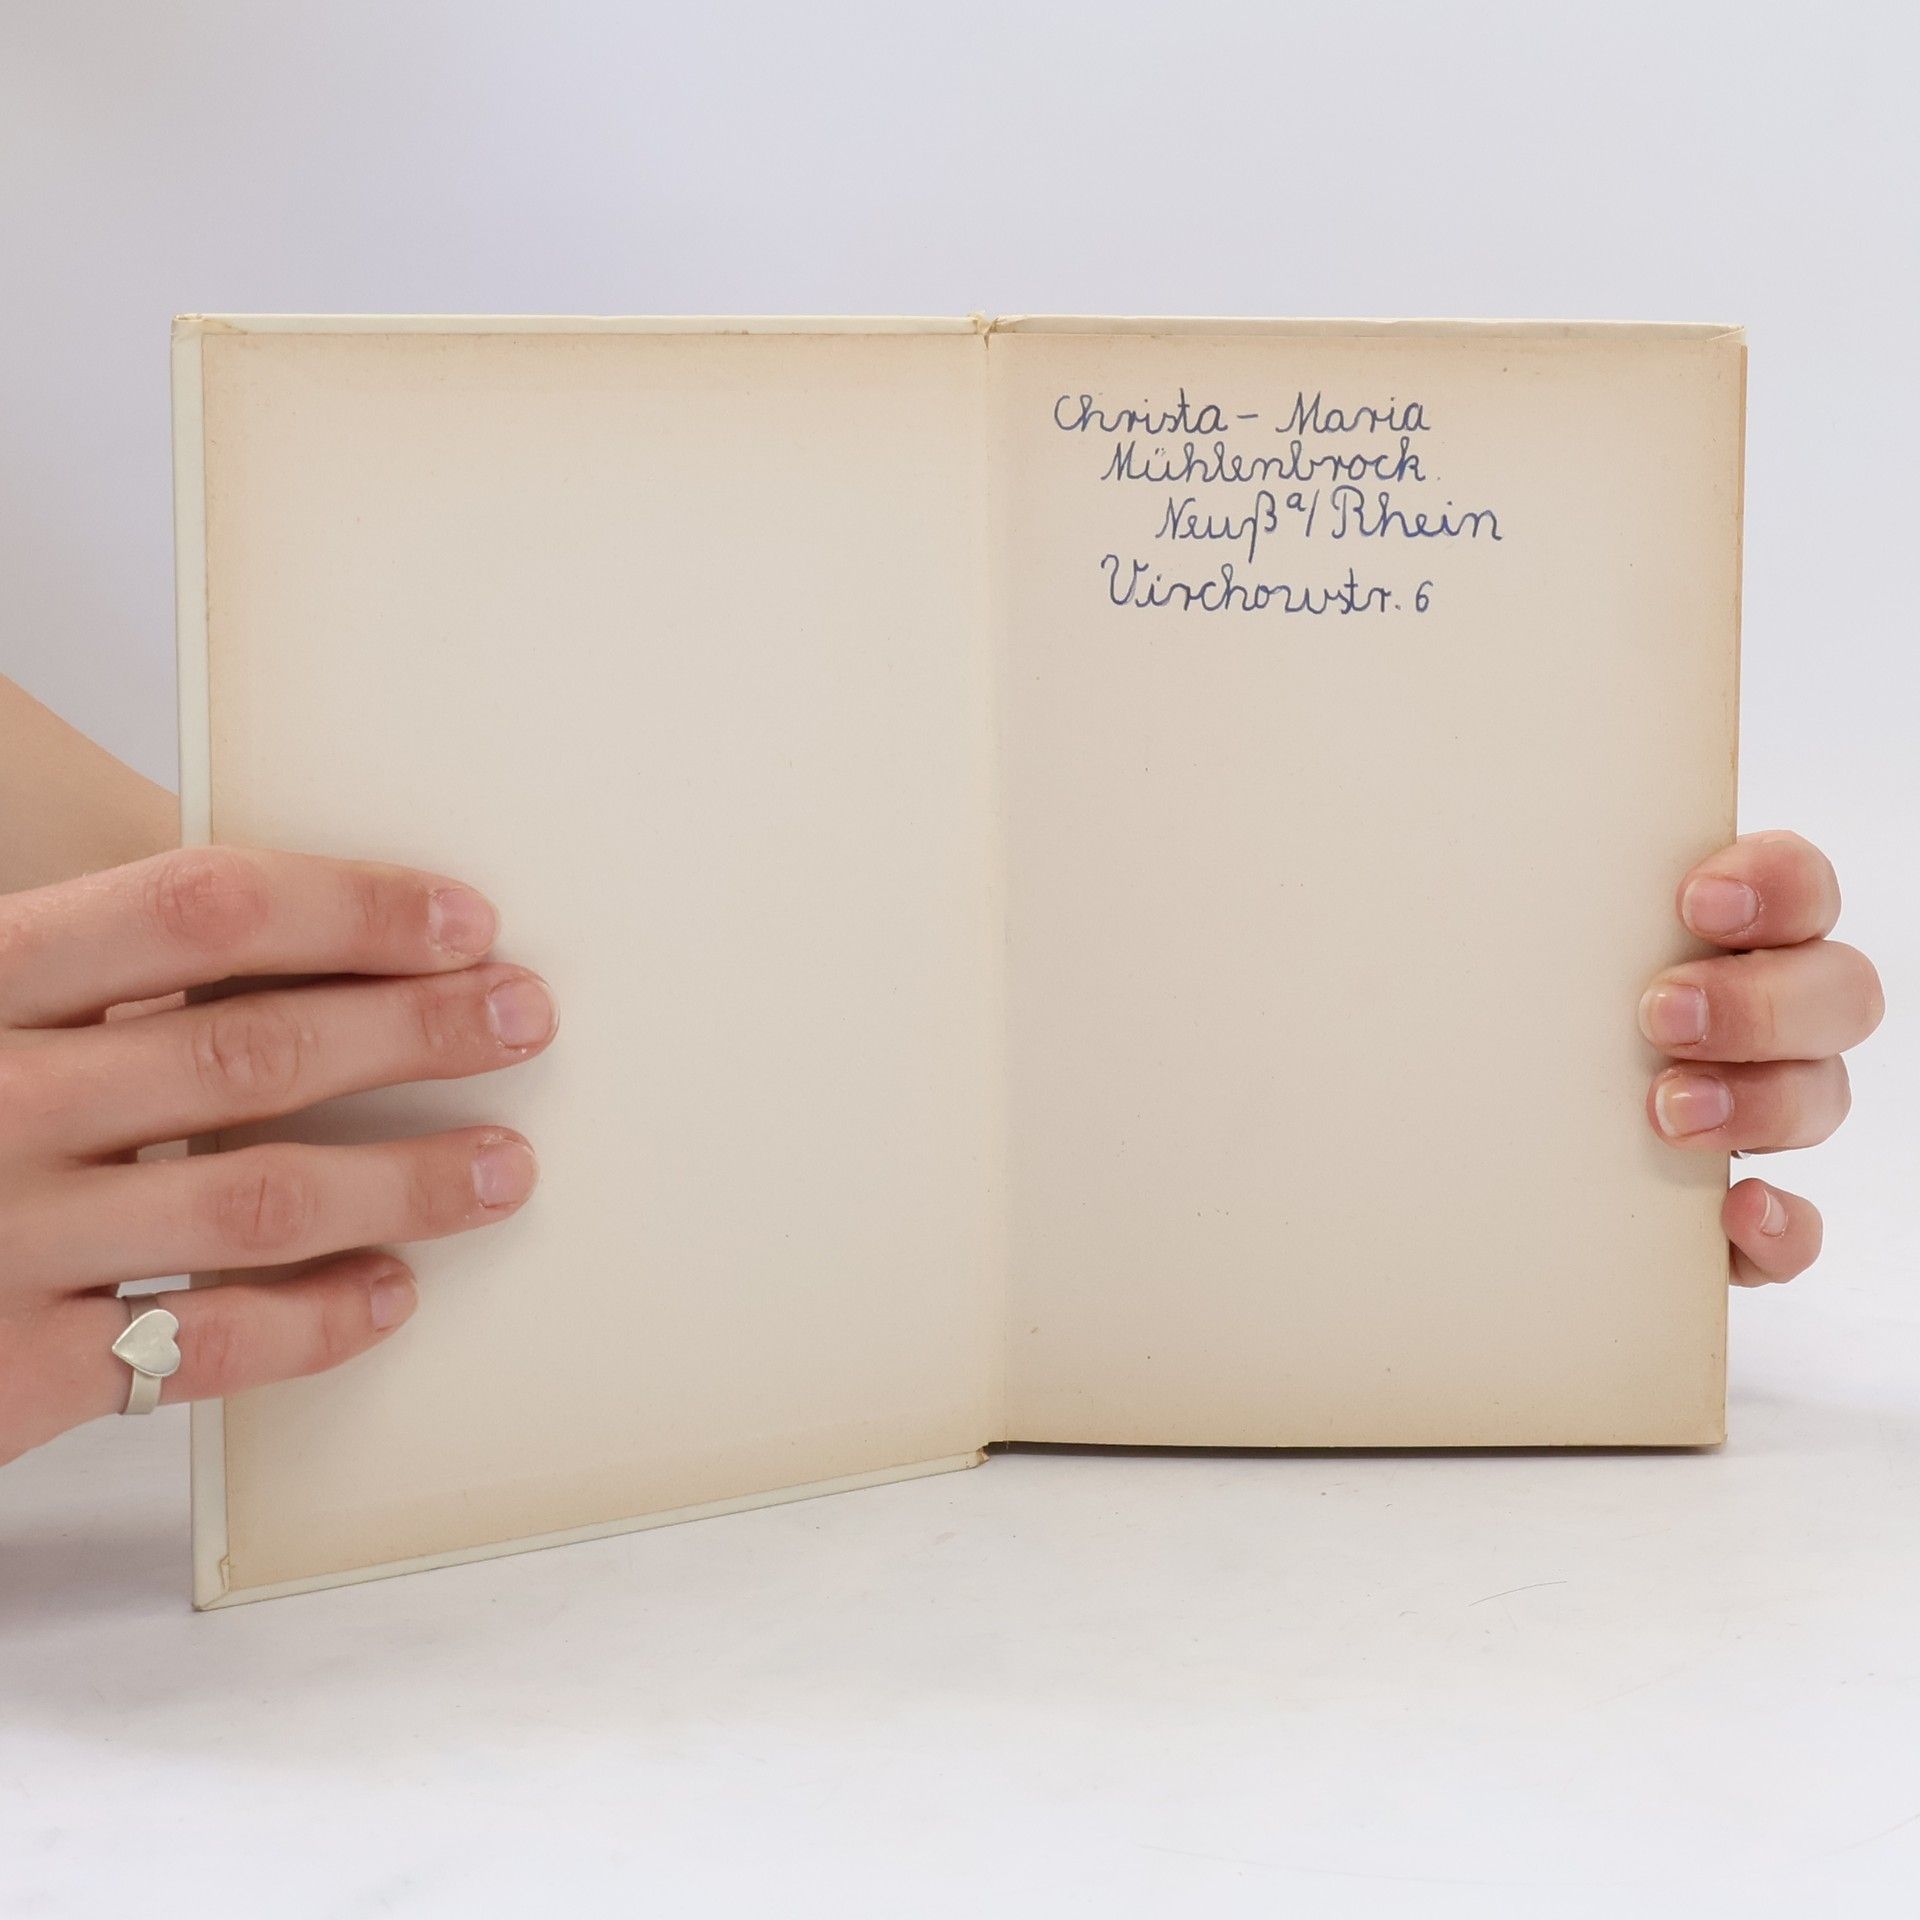 Christa - Maria
Mühlenbrock.
Neuß a/Rhein
Virchowstr. 6